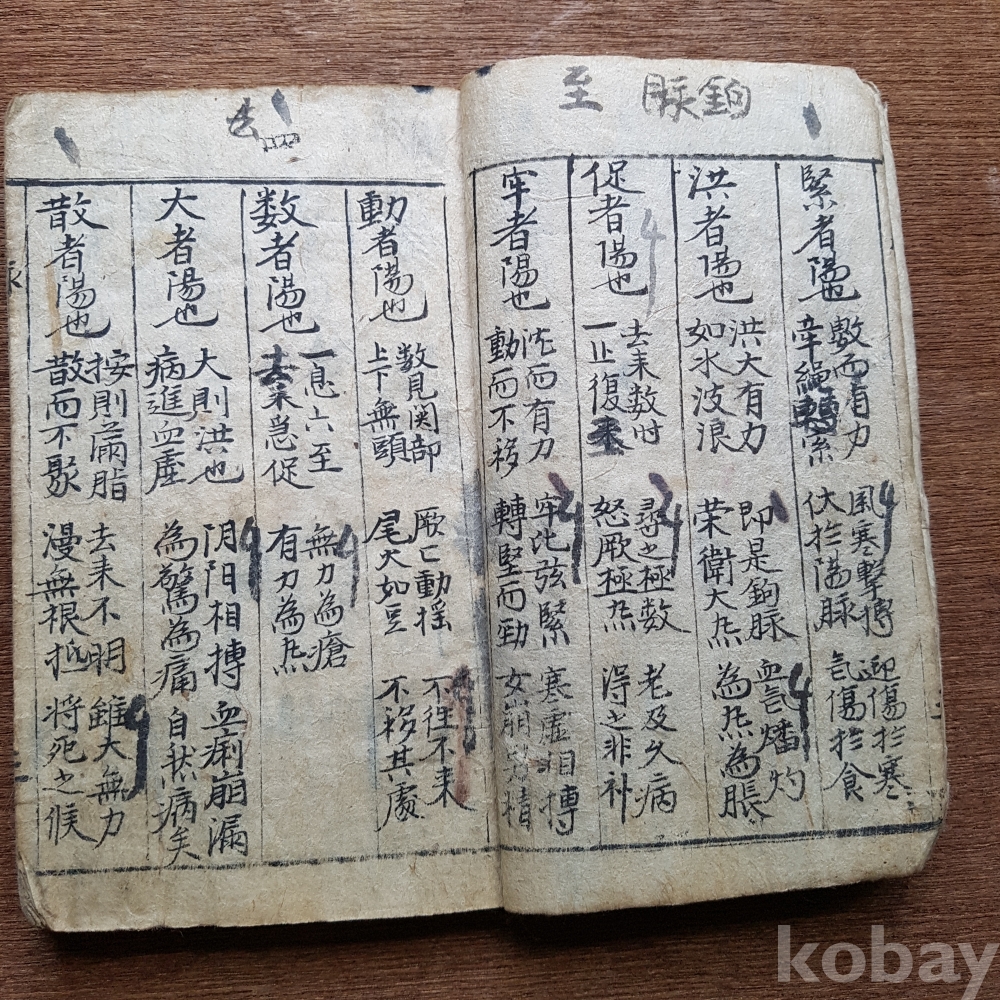 至 脉鉤
緊者陽也
數而有力
牽繩轉索
風寒擊搏
伏於陽脉
迎傷於寒
气傷於食
洪者陽也
洪大有力
如水波浪
即是鉤脉
荣衛大炁
血气燔灼
為炁為脹
促者陽也
去来数时
一止復来
尋之極数
怒厥極炁
老及久病
得之非补
牢者陽也
沈而有力
動而不移
牢比弦緊
轉堅而勁
寒虛相搏
女崩男精
去
動者陽也
数見関部
上下無頭
尾大如豆
厥厥動揺
不徃不来
不移其處
数者陽也
一息六至
去来急促
無力為瘡
有力為炁
大者陽也
大則洪也
病進血虛
阴阳相搏
為驚為痛
血痢崩漏
自然病矣
散者陽也
按則滿脂
散而不聚
去来不明
漫無根抵
雖大無力
将死之候
kobay